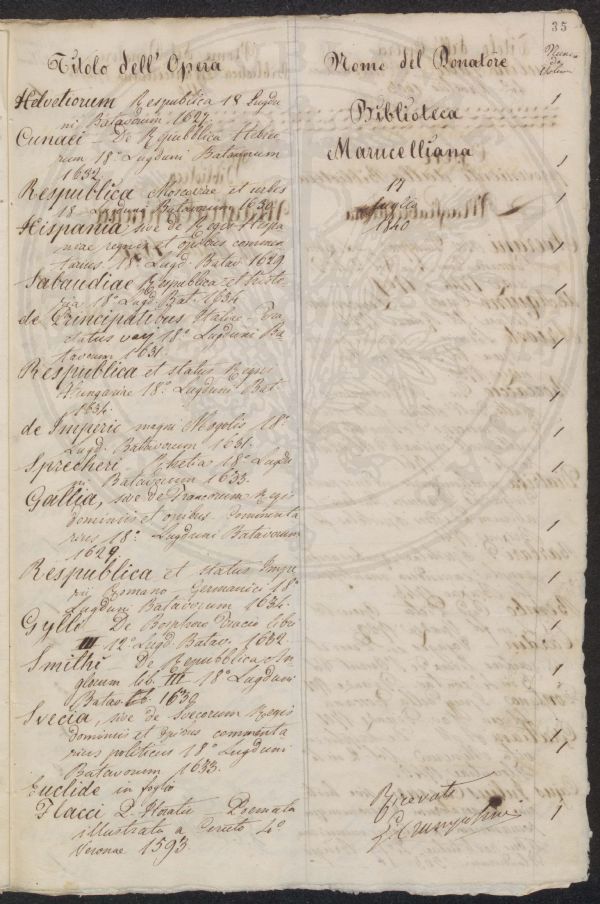 35
Titolo dell' Opera
Nome del Donatore
Helvetiorum Respublica 18 Lugdu
ni Batavorum 1627.
1
Biblioteca
Marucelliana
17
1840
Cunaei - De Republica Hebreo
rum 18° Lugduni Batavorum
1632
1
Respublica Moscoviae et urbes
18 Lugduni Batavorum 1630
1
Hispania, sive de Regis Hispa
niae regnis et opibus commen
tarius, 18° Lugd. Batav 1629
1
Sabaudiae Respublica et histo
ria 18° Lugd. Bat. 1634
1
de Principatibus Italiae - Tra
ctatus varj 18° Lugduni Ba
tavorum 1631.
1
Respublica et status Regni
Hungariae 18° Lugduni Bat
1634.
1
de Imperio magni Mogolis 18°
Lugd. Batavorum 1631.
1
Sprecheri Rhetia 18° Lugdu
ni Batavorum 1633.
1
Gallia, sive de Francorum Regis
dominiis et opibus. Commenta
rius 18° Lugduni Batavorum
1629.
1
Respublica et status Impe
rii Romano Germanici 18°
Lugduni Batavorum 1634.
1
Gylli De Bosphoro Tracio libri
III 12° Lugd. Batav. 1632
1
Smithi - De Repubblica An
glorum lib. III 18° Lugduni
Batav. 1630
1
Svecia, sive de Svecorum Regis
dominiis et opibus commenta
rius politicus 18° Lugduni
Batavorum 1633.
1
Euclide in foglio
1
Flacci Q. Horatii - Poemata
illustrata a 4°
Veronae 1593
1
Ricevuta